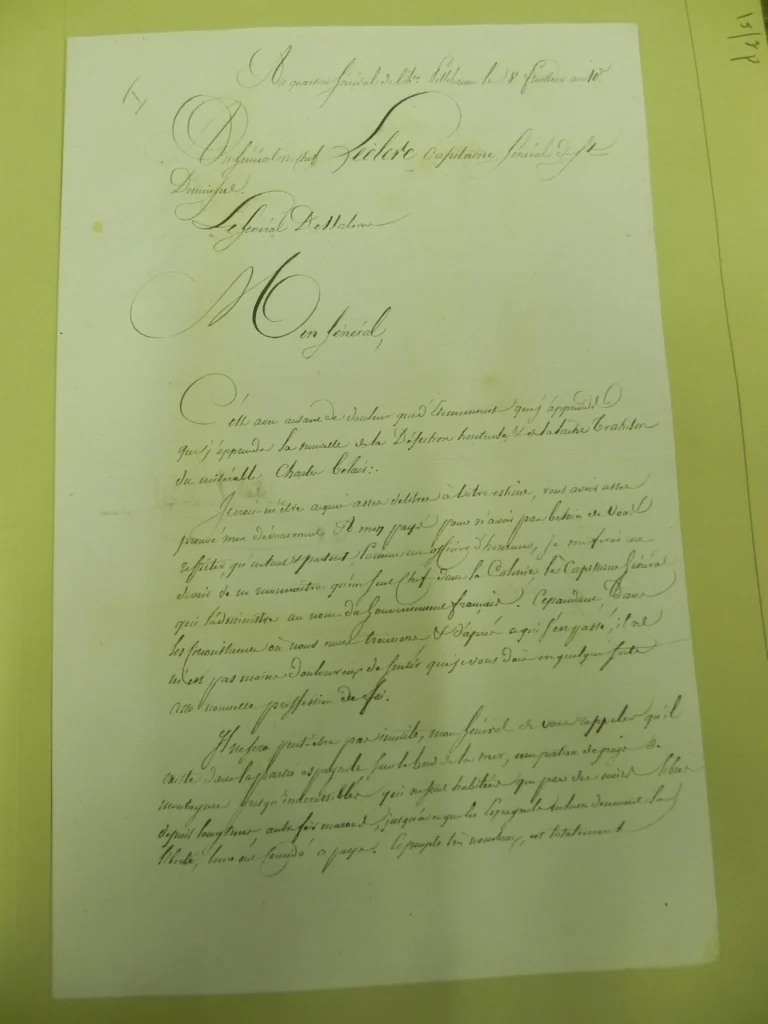 Au quartier Général de le 8 fructidor an 10e
Au Général en chef Leclerc Capitaine Général de St
Domingue.
Le Général
Mon Général,
C'est avec autant de douleur que d'Étonnement que j'apprends
que j'apprends la nouvelle de la Défection honteuse, & de la lache Trahison
du misérable Charle Belair.
m'être acquis assez de titres à Votre estime, vous avois assez
prouvé mon dévouement à mon pays pour n'avoir pas besoin de vous
qu'en tous & partout, comme un officier d'honneur, je me ferai un
devoir de ne reconnaitre qu'un seul Chef dans la Colonie, le Capitaine Général
qui l'administre au nom du Gouvernement français. Cependant Dans
les circonstances où nous nous trouvons & d'après ce qui s'en passé, il ne
m'est pas moins douloureux de sentir que je vous dois en quelque sorte
une nouvelle proffession de foi.
Il ne sera peut-être pas inutile, mon Général de vous rappeler qu'il
existe dans la partie espagnole sur le bord de la mer, une portion de pays de
montagnes presqu'inaccessibles qui ne sont habitées que par des noirs libres
depuis longtems autrefois marons, jusqu'à ce que les Espagnols donnant la
liberté, leur ont ce pays. Ce peuple très nombreux, est totalement